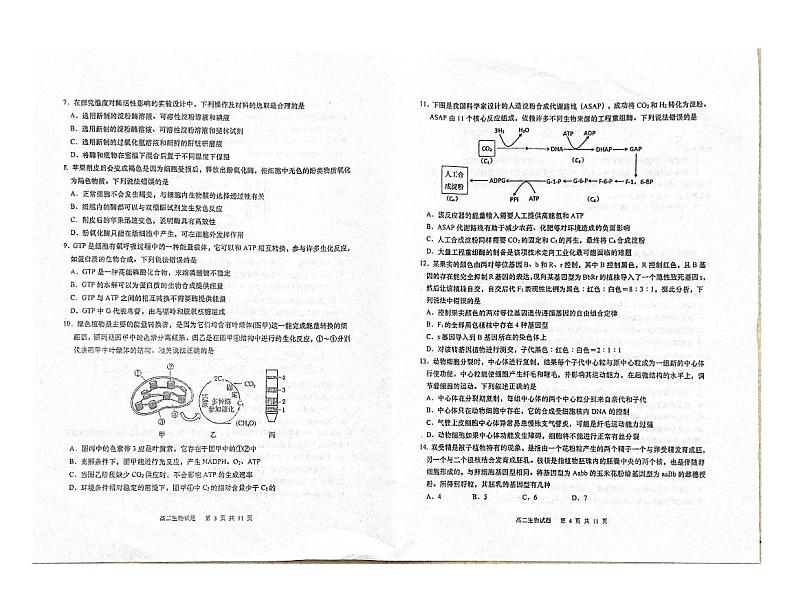 7、在探究温度对酶活性影响的实验设计中，下列操作及材料的选取最合理的是
A．选用新制的淀粉酶溶液、可溶性淀粉溶液和碘液
B．选用新制的淀粉酶溶液、可溶性淀粉溶液和斐林试剂
C．选用新制的过氧化氢溶液和新鲜的肝脏研磨液
D．将酶和底物在室温下混合后置于不同温度下保温
8．苹果削皮后会变成褐色是因为细胞受损后，释放出酚氧化酶，使细胞中无色的酚类物质氧化
为褐色物质。下列说法错误的是
A．正常细胞不会发生褐变，与细胞内生物膜的选择透过性有关
B．细胞内的酶都可以与双缩脲试剂发生紫色反应
C．削皮后的苹果迅速变色，说明酶具有高效性
D．酚氧化酶只能在活细胞中产生，可在细胞外发挥作用
9．GTP 是细胞有氧呼吸过程中的一种能量载体，它可以和 ATP 相互转换，参与许多生化反应，
如蛋白质的生物合成。下列说法错误的是
A．GTP 是一种高能磷酸化合物，末端磷酸键不稳定
B．GTP 的水解可以为蛋白质的生物合成提供能量
C．GTP 与 ATP 之间的相互转换不需要酶提供能量
D．GTP 中 G 代表鸟苷，由鸟嘌呤和脱氧核糖组成
10．绿色植物是主要的能量转换者，是因为它们均含有叶绿体(图甲)这一能完成能量转换的细
胞器，图乙是在图甲④结构中进行的生化反应，①～④分别
代表图甲中叶绿体的结构。相关说法正确的是
① ②
④ ③
甲
2C₃
CO₂
固定
还原
多种酶
参加催化
C₅
(CH₂O)
乙
4
3
2
1
丙
A．图丙中的色素带 3 应是叶黄素，它存在于图甲中的①②中
B．光照条件下，图甲能进行光反应，产生 NADPH、O₂、ATP
C．当图乙阶段缺少 CO₂ 供应时，不会影响 ATP 的生成速率
D．环境条件相对稳定的前提下，图甲④中 C₃ 的相对含量少于 C₅ 的
高二生物试题 第 3 页 共 11 页
11．下图是我国科学家设计的人造淀粉合成代谢路线（ASAP），成功将 CO₂ 和 H₂ 转化为淀粉。
ASAP 由 11 个核心反应组成，依赖许多不同生物来源的工程重组酶。下列说法错误的是
3H₂ H₂O ATP ADP
CO₂ DHA DHAP GAP
(C₁) (C₃)
人工合成淀粉 ADPG G-1-P G-6-P F-6-P F-1，6-BP
PPi ATP
(Cₙ) (C₆)
A．该反应器的能量输入需要人工提供高能氢和 ATP
B．ASAP 代谢路线有助于减少农药、化肥等对环境造成的负面影响
C．人工合成淀粉同样需要 CO₂ 的固定和 C₅ 的再生，最终将 C₆ 合成淀粉
D．大量工程重组酶的制备是该项技术走向工业化最可能面临的难题
12．某果实的颜色由两对等位基因 B、b 和 R、r 控制，其中 B 控制黑色，R 控制红色，且 B 基
因的存在能完全抑制 R 基因的表达，现向某基因型为 BbRr 的植株导入了一个隐性致死基因 s，
然后让该植株自交，自交后代 F₁ 表现性比例为黑色：红色：白色＝8：3：1，据此分析，下
列说法中错误的是
A．控制果实颜色的两对等位基因遵传遗循基因的自由组合定律
B．F₁ 的全部黑色植株中存在 4 种基因型
C．s 基因导入到 B 基因所在的染色体上
D．对该转基因植物进行测交，子代黑色：红色：白色＝2：1：1
13．动物细胞分裂时，中心体进行复制，结果每个子代中心粒与原中心粒成为一组新的中心体
行使功能。中心粒能使细胞产生纤毛和鞭毛，并影响其运动能力，在超微结构的水平上，调
节着细胞的运动。下列叙述正确的是
A．中心体在分裂期复制，每组中心体的两个中心粒分别来自亲代和子代
B．中心体只在动物细胞中存在，它的合成受细胞核内 DNA 的控制
C．气管上皮细胞中心体异常易患慢性支气管炎，可能是纤毛运动能力过强
D．动物细胞如果中心体功能发生障碍，细胞将不能进行正常有丝分裂
14．双受精是被子植物特有的现象，是指由一个花粉粒产生的两个精子一个与卵受精发育成胚，
另一个与二个极核结合发育成胚乳。极核是指植物胚珠内的胚囊中央的两个核，也是伴随卵
细胞形成的，与卵细胞基因型相同。将基因型为 Aabb 的玉米花粉给基因型为 aaBb 的雌穗授
粉，所得到籽粒，其胚乳的基因型有几种
A．4 B．5 C．6 D．7
高二生物试题 第 4 页 共 11 页